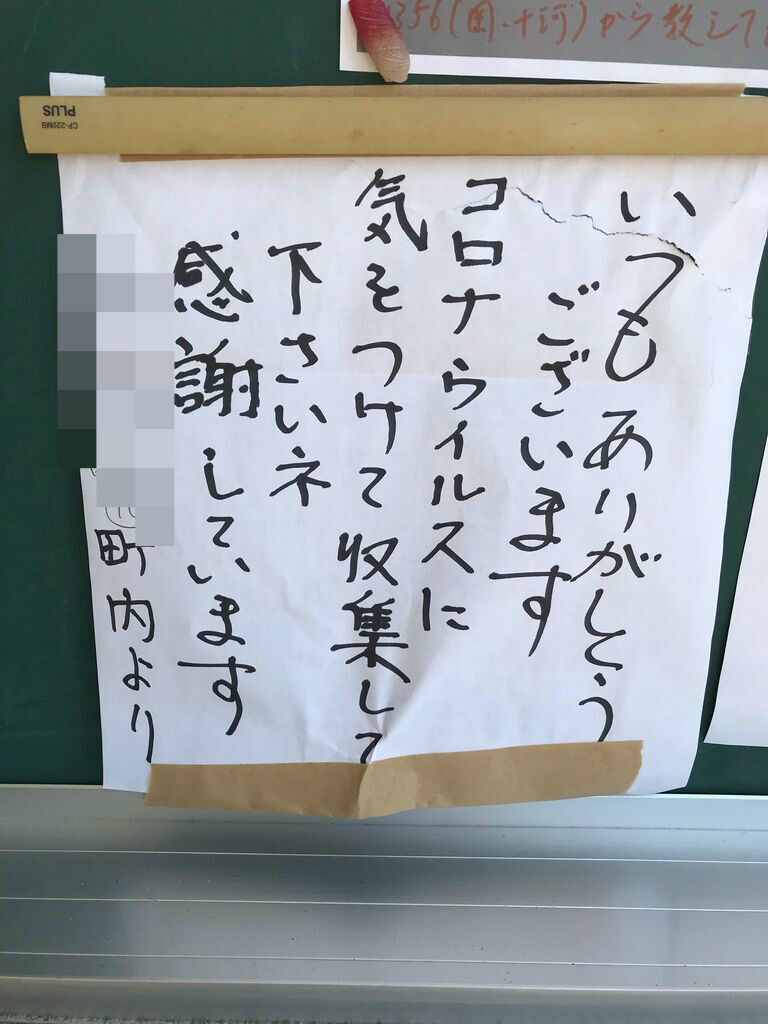 356(国・十河)から教して
PLUS
CP-220MB
いつもありがとう
ございます
コロナウイルスに
気をつけて収集して
下さいネ
感謝しています
町内より